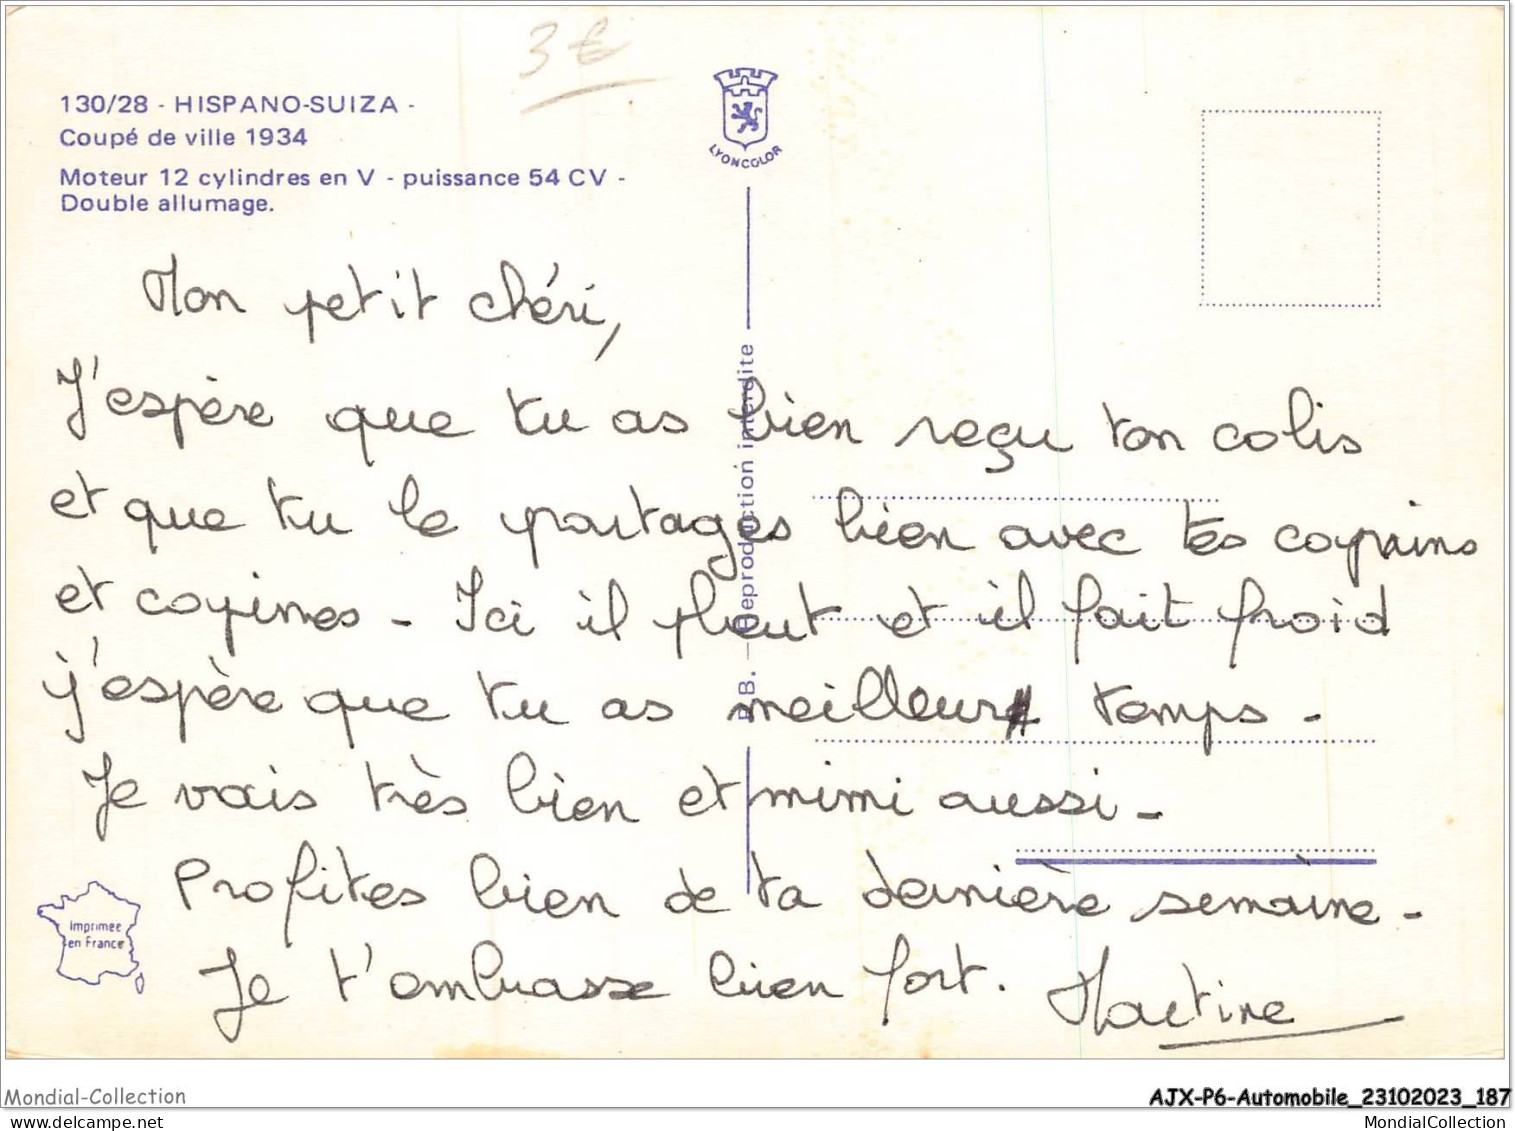 3 €
130/28 - HISPANO-SUIZA -
Coupé de ville 1934
Moteur 12 cylindres en V - puissance 54 CV -
Double allumage.
LYONCOLOR
Reproduction interdite
Mon petit chéri,
J'espère que tu as bien reçu ton colis
et que tu le partages bien avec tes copains
et copines - Ici il pleut et il fait froid
j'espère que tu as meilleur temps -
Je vais très bien et mimi aussi -
Profites bien de ta dernière semaine -
Je t'embrasse bien fort. Martine
Imprimée
en France
Mondial-Collection
AJX-P6-Automobile_23102023_187
www.delcampe.net
MondialCollection